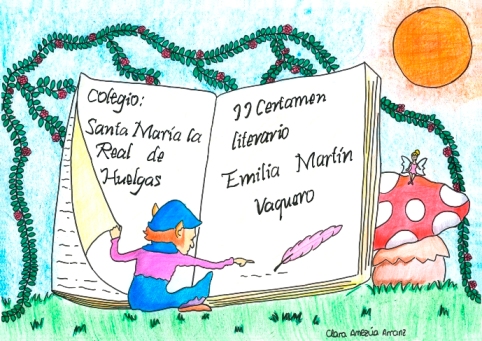 Colegio:
Santa María la
Real de
Huelgas
II Certamen
literario
Emilia Martín
Vaquero
Clara Amezúa Arranz